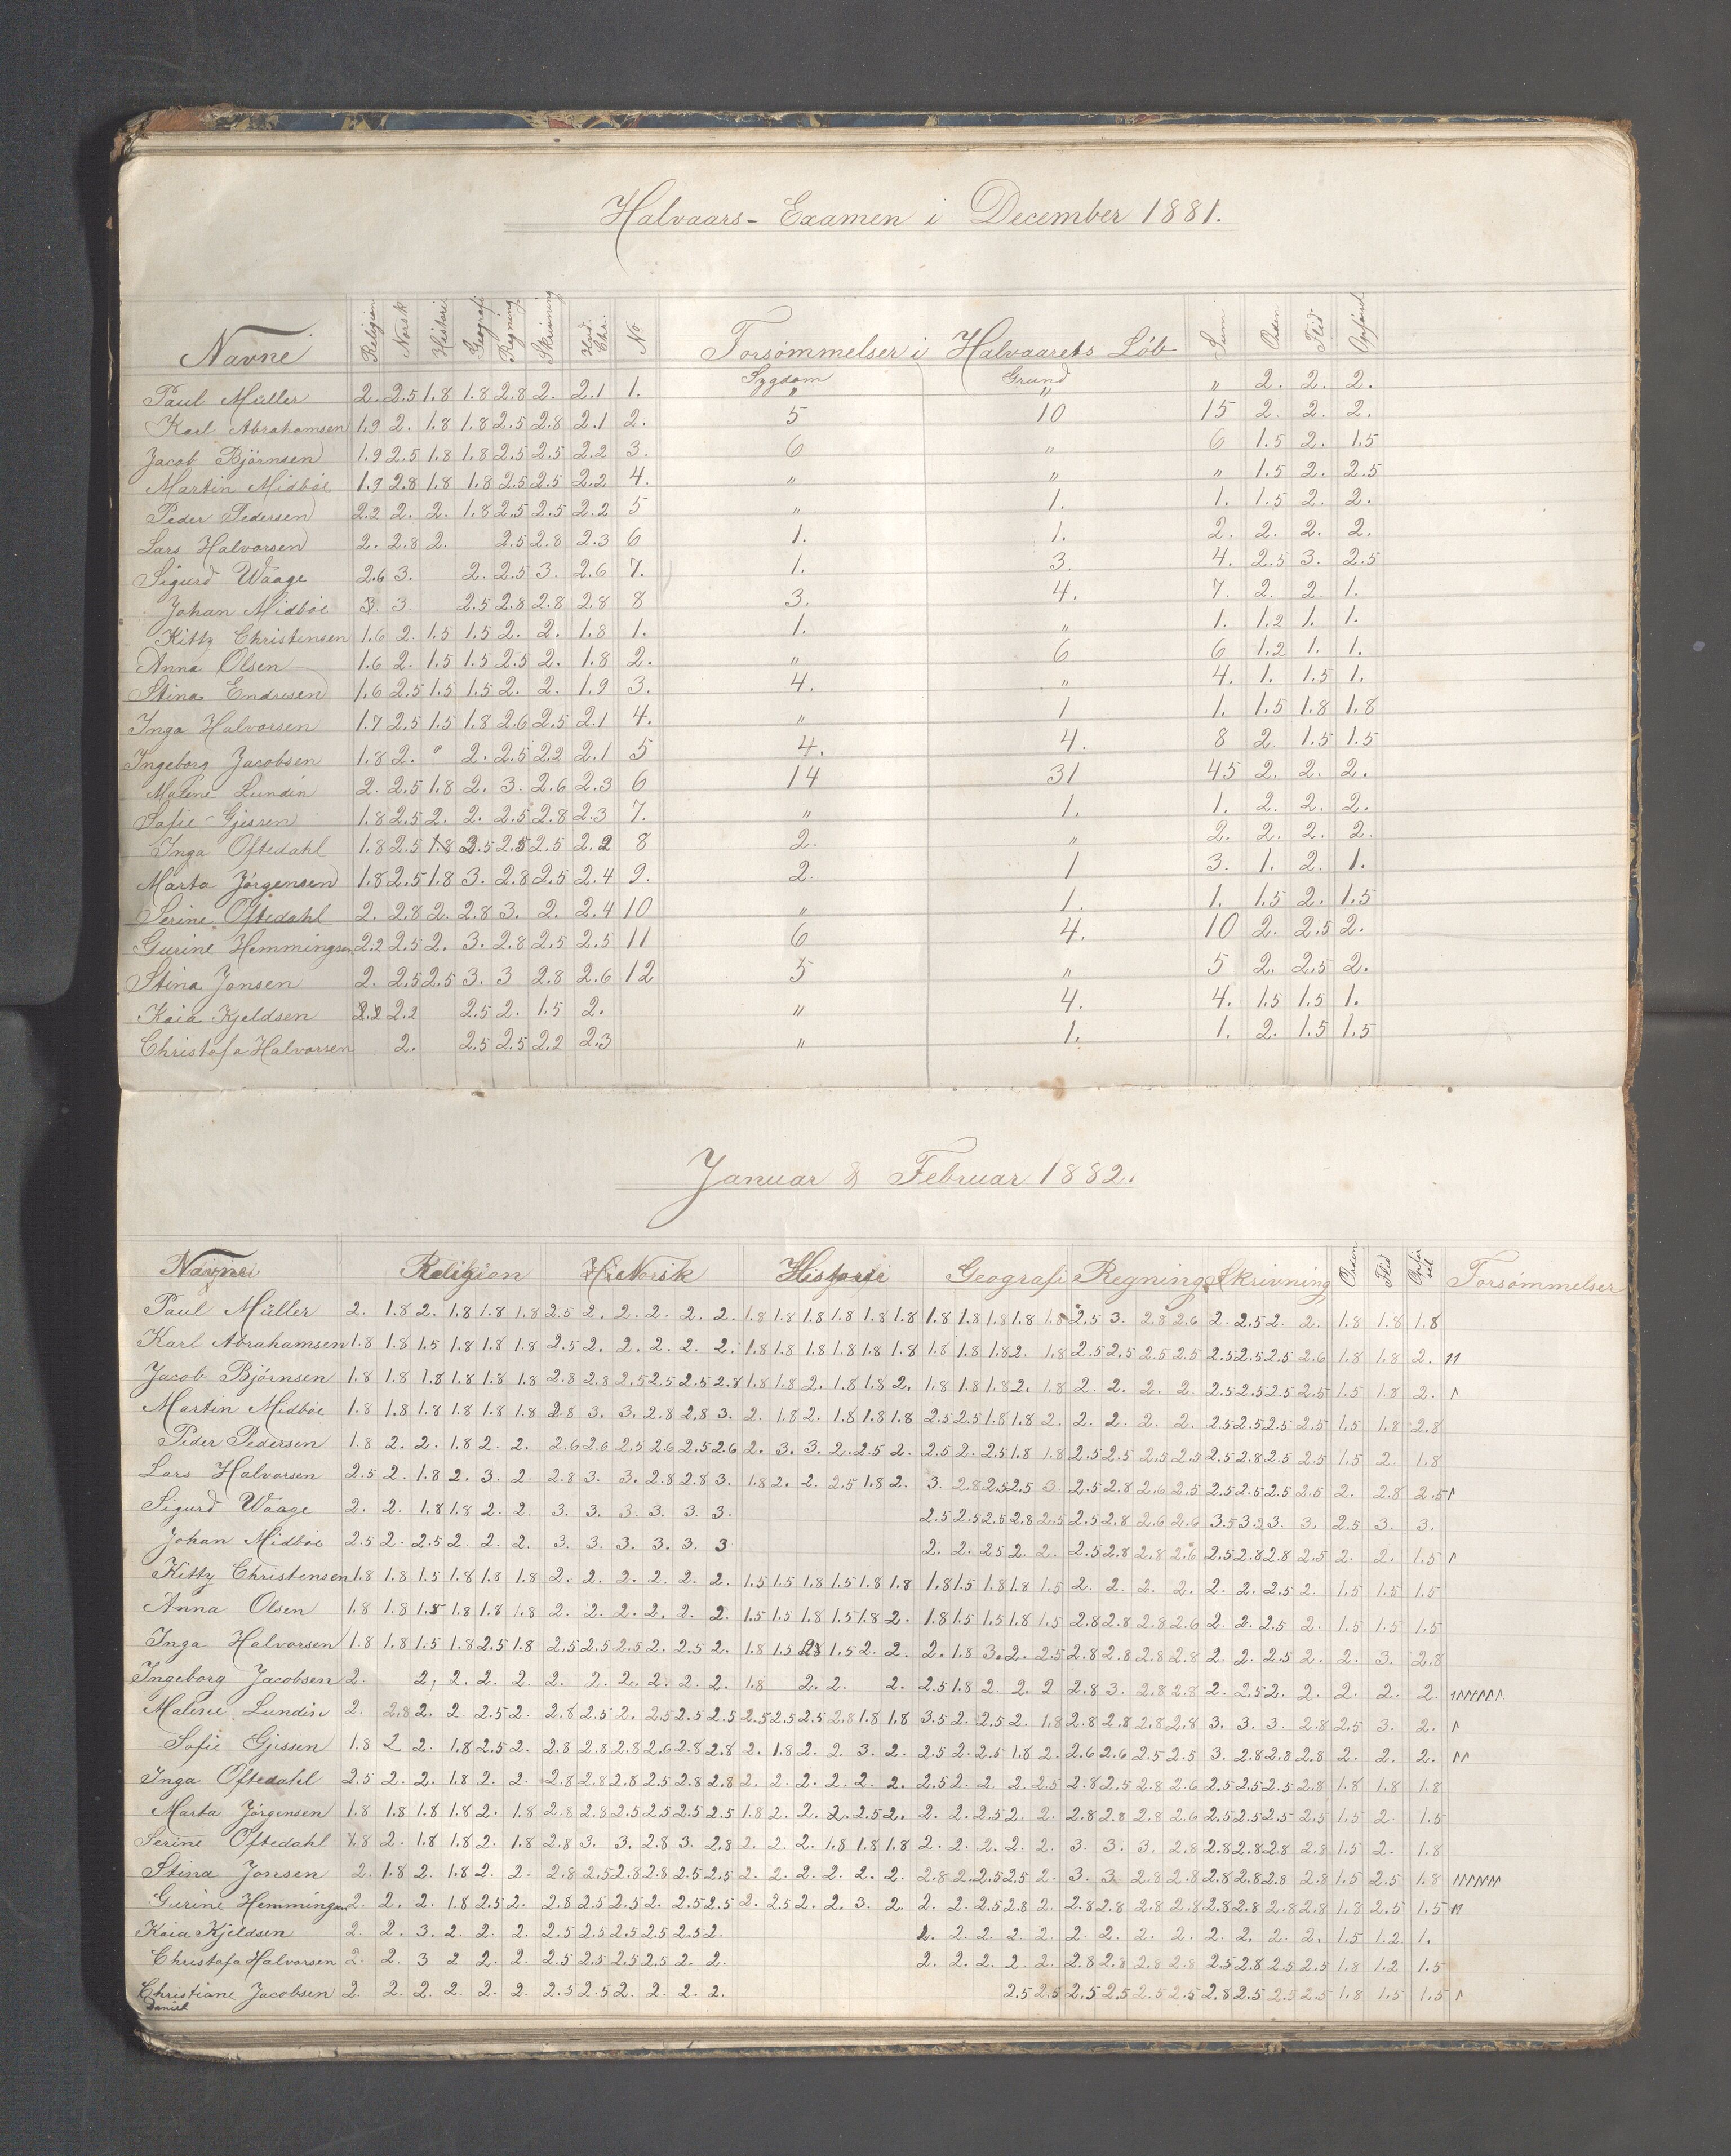 Halvaars-Examen i December 1881.
Navne Religion Norsk Histori Geografi Regning Skrivning Hvd. Chr. No Forsömmelser i Halvaarets Löb Sum Orden Flid Opförsel
Sygdom Grund
Paul Müller 2. 2.5 1.8 1.8 2.8 2. 2.1 1. " " " 2. 2. 2.
Karl Abrahamsen 1.9 2. 1.8 1.8 2.5 2.8 2.1 2. 5 10 15 2. 2. 2.
Jacob Björnsen 1.9 2.5 1.8 1.8 2.5 2.5 2.2 3. 6 " 6 1.5 2. 1.5
Martin Midböe 1.9 2.8 1.8 1.8 2.5 2.5 2.2 4. " " " 1.5 2. 2.5
Peder Pedersen 2.2 2. 2. 1.8 2.5 2.5 2.2 5 " 1. 1. 1.5 2. 2.
Lars Halvorsen 2. 2.8 2. 2.5 2.8 2.3 6 1. 1. 2. 2. 2. 2.
Sigurd Waage 2.6 3. 2. 2.5 3. 2.6 7. 1. 3. 4. 2.5 3. 2.5
Johan Midböe 3. 3. 2.5 2.8 2.8 2.8 8 3. 4. 7. 2. 2. 1.
Kitty Christensen 1.6 2. 1.5 1.5 2. 2. 1.8 1. 1. " 1. 1.2 1. 1.
Anna Olsen 1.6 2. 1.5 1.5 2.5 2. 1.8 2. " 6 6 1.2 1. 1.
Stina Endresen 1.6 2.5 1.5 1.5 2. 2. 1.9 3. 4. " 4. 1. 1.5 1.
Inga Halvorsen 1.7 2.5 1.5 1.8 2.6 2.5 2.1 4. " 1 1. 1.5 1.8 1.8
Ingeborg Jacobsen 1.8 2. " 2. 2.5 2.2 2.1 5 4. 4. 8 2. 1.5 1.5
Malene Lundin 2. 2.5 1.8 2. 3. 2.6 2.3 6 14 31 45 2. 2. 2.
Sofie Gjessen 1.8 2.5 2. 2. 2.5 2.8 2.3 7. " 1. 1. 2. 2. 2.
Inga Oftedahl 1.8 2.5 1.8 2.5 2.5 2.5 2.2 8 2. " 2. 2. 2. 2.
Marta Jörgensen 1.8 2.5 1.8 3. 2.8 2.5 2.4 9. 2. 1 3. 1. 2. 1.
Serine Oftedahl 2. 2.8 2. 2.8 3. 2. 2.4 10 " 1. 1. 1.5 2. 1.5
Gurine Hemmingsen 2.2 2.5 2. 3. 2.8 2.5 2.5 11 6 4. 10 2. 2.5 2.
Stina Jonsen 2. 2.5 2.5 3. 3 2.8 2.6 12 5 " 5 2. 2.5 2.
Kaia Kjeldsen 2.2 2.2 2.5 2. 1.5 2. " 4. 4. 1.5 1.5 1.
Christofa Halvorsen 2. 2.5 2.5 2.2 2.3 " 1. 1. 2. 1.5 1.5
Januar & Februar 1882.
Navne Religion Norsk Historie Geografi Regning Skrivning Orden Flid Opför sel Forsömmelser
Paul Müller 2. 1.8 2. 1.8 1.8 1.8 2.5 2. 2. 2. 2. 2. 1.8 1.8 1.8 1.8 1.8 1.8 1.8 1.8 1.8 1.8 1.8 2.5 3. 2.8 2.6 2. 2.5 2. 2. 1.8 1.8 1.8
Karl Abrahamsen 1.8 1.8 1.5 1.8 1.8 1.8 2.5 2. 2. 2. 2. 2. 1.8 1.8 1.8 1.8 1.8 1.8 1.8 1.8 1.8 2. 1.8 2.5 2.5 2.5 2.5 2.5 2.5 2.5 2.6 1.8 1.8 2. 11
Jacob Björnsen 1.8 1.8 1.8 1.8 1.8 1.8 2.8 2.8 2.5 2.5 2.5 2.8 1.8 1.8 2. 1.8 1.8 2. 1.8 1.8 1.8 2. 1.8 2. 2. 2. 2. 2.5 2.5 2.5 2.5 1.5 1.8 2. 1
Martin Midböe 1.8 1.8 1.8 1.8 1.8 1.8 2.8 3. 3. 2.8 2.8 3. 2. 1.8 2. 1.8 1.8 1.8 2.5 2.5 1.8 1.8 2. 2. 2. 2. 2. 2.5 2.5 2.5 2.5 1.5 1.8 2.8
Peder Pedersen 1.8 2. 2. 1.8 2. 2. 2.6 2.6 2.5 2.6 2.5 2.6 2. 3. 3. 2. 2.5 2. 2.5 2. 2.5 1.8 1.8 2.5 2.5 2.5 2.5 2.5 2.8 2.5 2.5 1.5 2. 1.8
Lars Halvorsen 2.5 2. 1.8 2. 3. 2. 2.8 3. 3. 2.8 2.8 3. 1.8 2. 2. 2.5 1.8 2. 3. 2.8 2.5 2.5 3 2.5 2.8 2.6 2.5 2.5 2.5 2.5 2.5 2. 2.8 2.5 1
Sigurd Waage 2. 2. 1.8 1.8 2. 2. 3. 3. 3. 3. 3. 3. 2.5 2.5 2.5 2.8 2.5 2.5 2.8 2.6 2.6 3.5 3.2 3. 3. 2.5 3. 3.
Johan Midböe 2.5 2. 2.5 2. 2. 2. 3. 3. 3. 3. 3. 3 2. 2. 2.5 2. 2. 2.5 2.8 2.8 2.6 2.5 2.8 2.8 2.5 2. 2. 1.5 1
Kitty Christensen 1.8 1.8 1.5 1.8 1.8 1.8 2. 2. 2. 2. 2. 2. 1.5 1.5 1.8 1.5 1.8 1.8 1.8 1.5 1.8 1.8 1.5 2. 2. 2. 2. 2. 2. 2.5 2. 1.5 1.5 1.5
Anna Olsen 1.8 1.8 1.5 1.8 1.8 1.8 2. 2. 2. 2. 2. 2. 1.5 1.5 1.8 1.5 1.8 2. 1.8 1.5 1.5 1.8 1.5 2.8 2.8 2.8 2.6 2. 2. 2.5 2. 1.5 1.5 1.5
Inga Halvorsen 1.8 1.8 1.5 1.8 2.5 1.8 2.5 2.5 2.5 2. 2.5 2. 1.8 1.5 1.5 2. 2. 2. 1.8 3. 2. 2.5 2.8 2.8 2.8 2.8 2. 2. 2.5 2. 2. 3. 2.8
Ingeborg Jacobsen 2. 2, 2. 2. 2. 2. 2. 2. 2. 2. 2. 1.8 2. 2. 2. 2.5 1.8 2. 2. 2 2.8 3. 2.8 2.8 2. 2.5 2. 2. 2. 2. 2. 1111111
Malene Lundin 2. 2.8 2. 2. 2.5 2. 2.8 2.5 2. 2.5 2.5 2.5 2.5 2.5 2.5 2.8 1.8 1.8 3.5 2. 2.5 2. 1.8 2.8 2.8 2.8 2.8 3. 3. 3. 2.8 2.5 3. 2. 1
Sofie Gjessen 1.8 2 2. 1.8 2.5 2. 2.8 2.8 2.8 2.6 2.8 2.8 2. 1.8 2. 2. 3. 2. 2.5 2. 2.5 1.8 2. 2.6 2.6 2.5 2.5 3. 2.8 2.8 2.8 2. 2. 2. 11
Inga Oftedahl 2.5 2. 2. 1.8 2. 2. 2.8 2.8 2.8 2.5 2.8 2.8 2. 2. 2. 2. 2. 2. 2.5 2. 2. 2. 2.5 2.8 2.5 2.8 2.6 2.5 2.5 2.5 2.8 1.8 1.8 1.8
Marta Jörgensen 1.8 1.8 1.8 1.8 2. 1.8 2.8 2.8 2.5 2.5 2.5 2.5 1.8 2. 2. 2. 2.5 2. 2. 2. 2.5 2. 2. 2.8 2.8 2.8 2.6 2.5 2.5 2.5 2.5 1.5 2. 1.5
Serine Oftedahl 1.8 2. 1.8 1.8 2. 1.8 2.8 3. 3. 2.8 3. 2.8 2. 2. 2. 1.8 1.8 1.8 2. 2. 2. 2. 2. 3. 3. 3. 2.8 2.8 2.8 2.8 2.8 1.5 2. 1.8
Stina Jonsen 2. 1.8 2. 1.8 2. 2. 2.8 2.5 2.8 2.8 2.5 2.5 2. 2. 2. 2. 2. 2. 2.8 2. 2.5 2.5 2. 3. 3. 2.8 2.8 2.8 2.8 2.8 2.8 1.5 2.5 1.8 111111
Gurine Hemmingsen 2. 2. 2. 1.8 2.5 2. 2.8 2.5 2.5 2. 2.5 2.5 2. 2.5 2. 2. 3. 2. 2. 2. 2.5 2.8 2. 2.8 2.8 2.8 2.8 2.8 2.8 2.8 2.8 1.8 2.5 1.5 11
Kaia Kjeldsen 2. 2. 3. 2. 2. 2. 2.5 2.5 2.5 2.5 2.5 2. 2. 2. 2. 2. 2. 2. 2. 2. 2. 2. 2. 2. 2. 1.5 1.2 1.
Christofa Halvorsen 2. 2. 3 2 2. 2. 2.5 2.5 2.5 2.5 2. 2. 2. 2. 2. 2. 2. 2.8 2.8 2.8 2.8 2.5 2.8 2.5 2.5 1.8 1.2 1.5
Christiane Jacobsen 2. 2. 2. 2. 2. 2. 2.5 2.5 2. 2. 2. 2. 2.5 2.5 2.5 2.5 2.5 2.5 2.8 2.5 2.5 2.5 1.8 1.5 1.5 1
Daniel